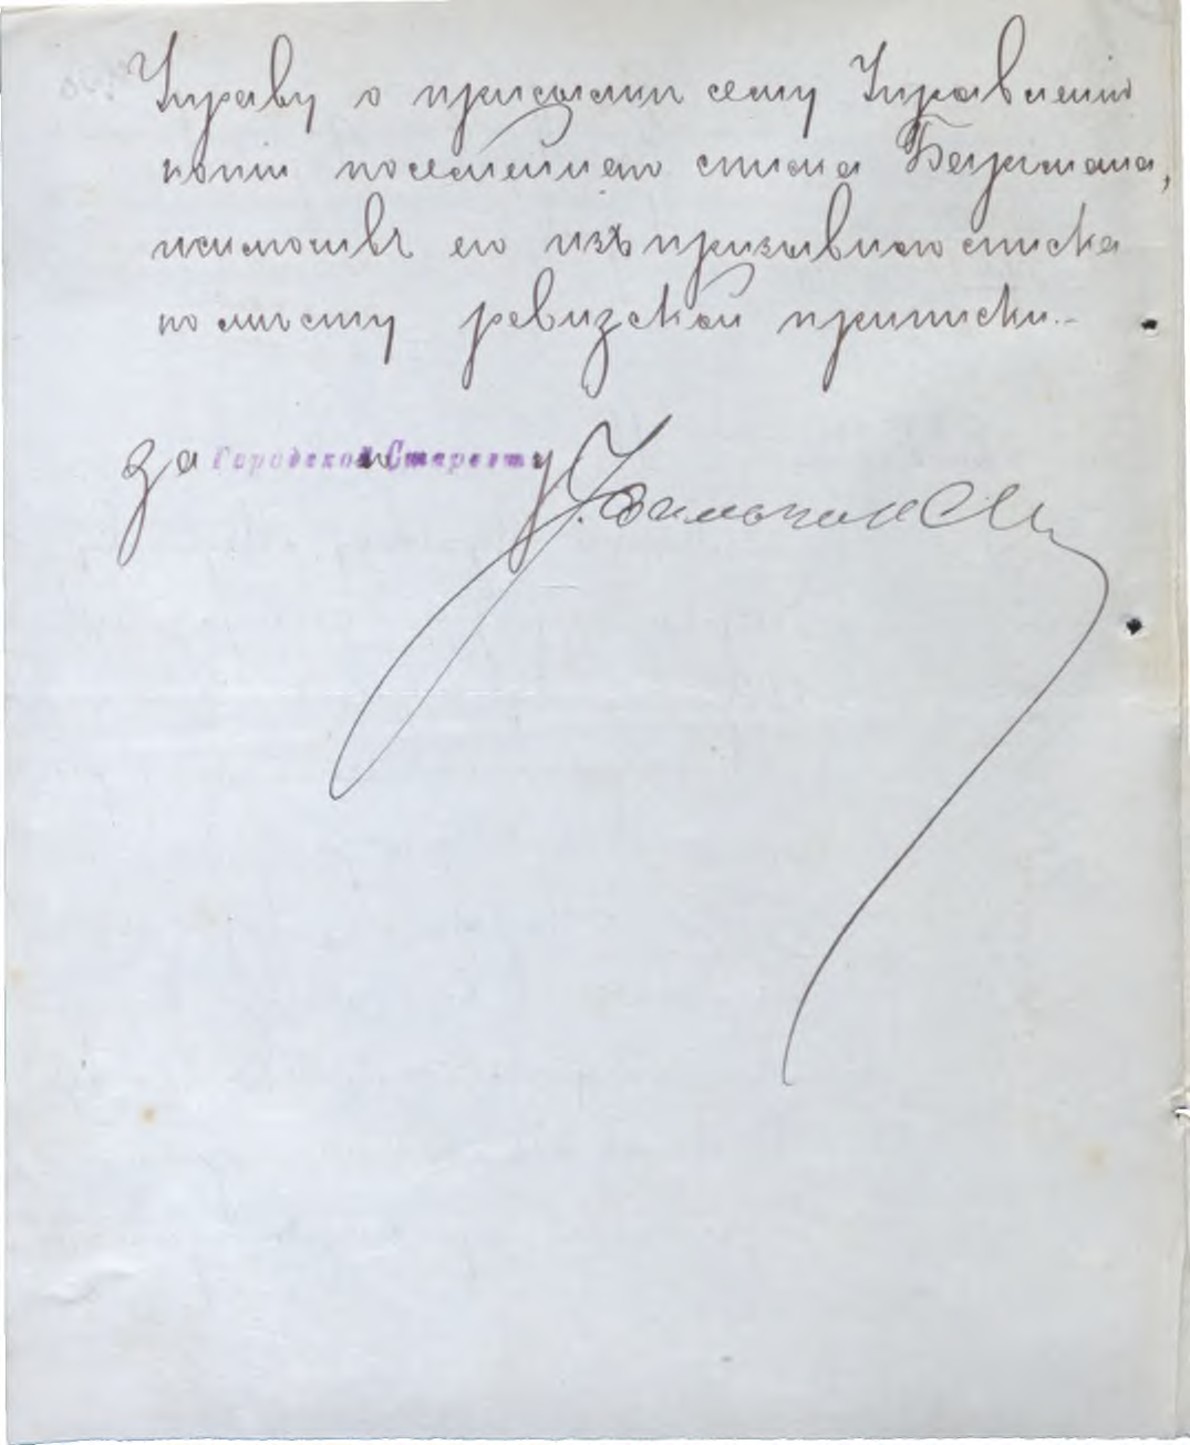 Управу о присылкѣ сему Управленію
копіи посемейнаго списка Бергмана,
исключивъ его изъ призывного списка
по мѣсту ревизской приписки.-
За Городского Старосту